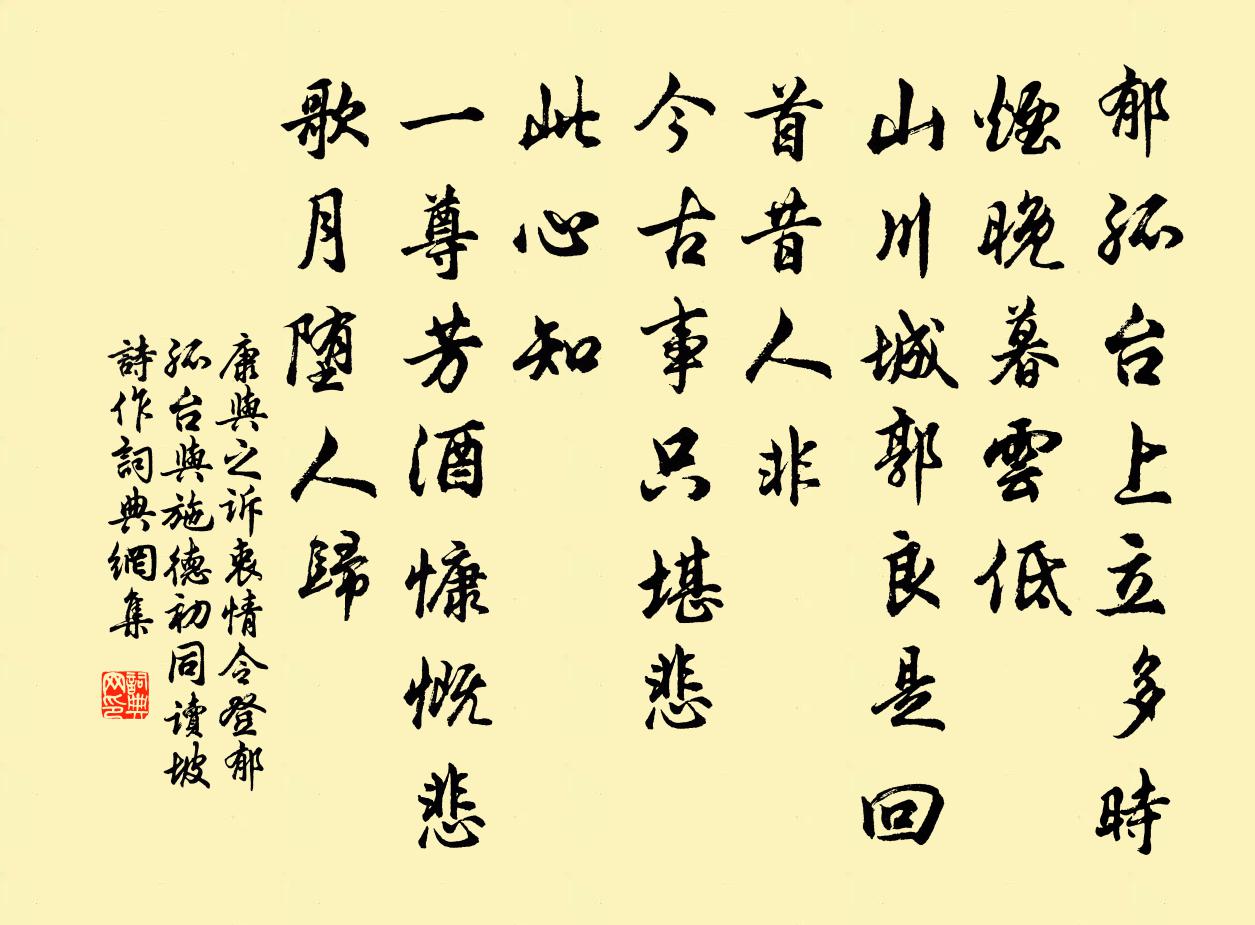 郁孤台上立多時
煙晚暮雲低
山川城郭良是回
首昔人非
今古事只堪悲
此心知
一尊芳酒慷慨悲
歌月堕人歸
康與之訴衷情令登郁
孤台與施德初同讀坡
詩作詞典網集
詞典
网印